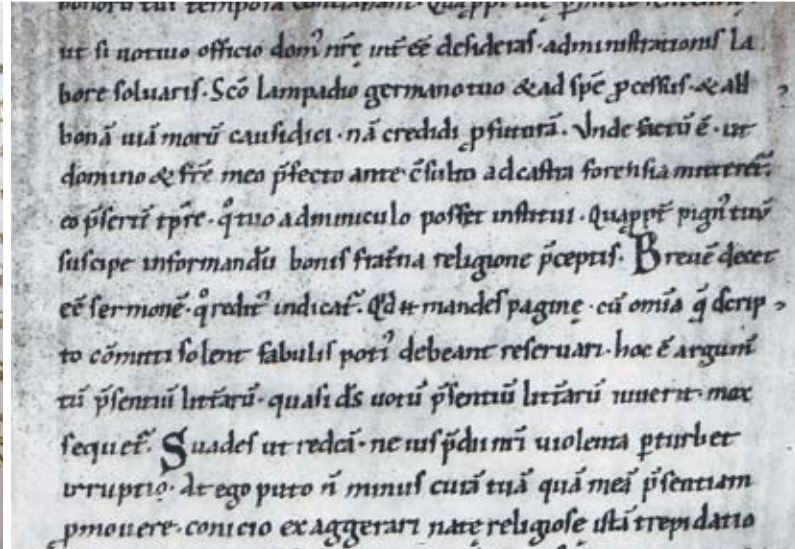 ut si uotiuo officio dom᾿ nr̄ę int̄ēē desideras· administrationis la
bore soluaris· Scō Lampadio germano tuo & ad spē p̱cessus· & ad
bonā uiā morū causidici· nā credidi p̱futurā. Vnde factū ē· ut
domino & fr̄e meo p̄fecto ante cs̄ulto ad castra forensia mitteret᾿·
eo p̄sertī tp̄re· q̊ tuo adminiculo posset institui· Quapp̱t pign᾿ tuū
suscipe informandū bonis frat̄na religione p̄ceptis· Breuē decet
ēē sermonē· q̊ redit᾿ indicat᾿. Qd̄ mandes paginę· cū om̄ia
to cōmitti solent fabulis poti᾿ debeant reseruari· hoc ē argum̄
tū p̄sentiū litt̄arū· quasi d̄s uotū p̄sentiū litt̄arū iuuerit· mox
sequet᾿. Suades ut redeā· ne uiolenta p̱turbet
irruptio· At ego puto n̄ minus curā tuā quā meā p̄sentiam
p̱mouere· conicio exaggerari religiose istā trepidatio